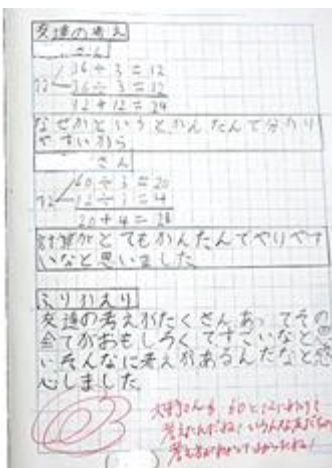 友達の考え
さん
36÷3=12
72 36÷3=12
12+12=24
なぜかというとかんたんで分かり
やすいから
さん
60÷3=20
72 12÷3=4
20+4=24
計算がとてもかんたんでやりやす
いなと思いました
ふりかえり
友達の考えがたくさんあってその
全てがおもしろくてすごいなと思
いそんなに考えがあるんだなと感
心しました
さんも 60と12にわけて
考えたんだね!いろんな友だちの
考え方がわかってよかったね!